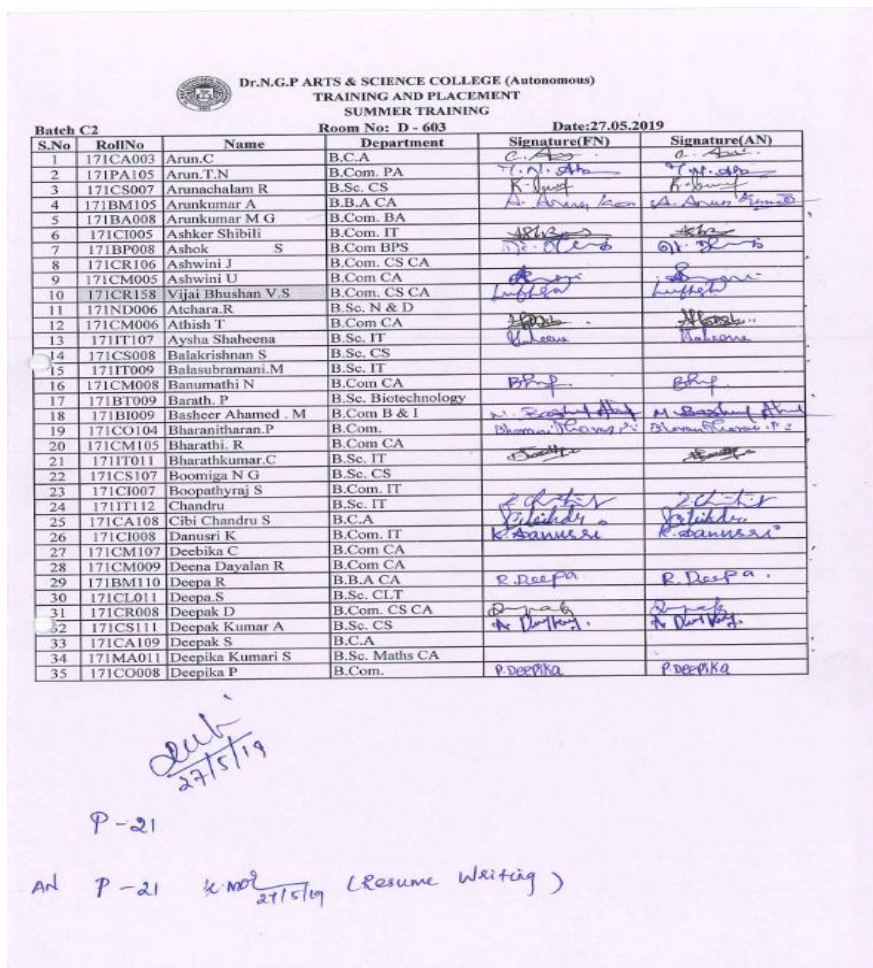 Dr.N.G.P ARTS & SCIENCE COLLEGE (Autonomous)
TRAINING AND PLACEMENT
SUMMER TRAINING
Batch C2 Room No: D - 603 Date:27.05.2019
S.No RollNo Name Department Signature(FN) Signature(AN)
1 171CA003 Arun.C B.C.A
2 171PA105 Arun.T.N B.Com. PA
3 171CS007 Arunachalam R B.Sc. CS
4 171BM105 Arunkumar A B.B.A CA
5 171BA008 Arunkumar M G B.Com. BA
6 171CI005 Ashker Shibili B.Com. IT
7 171BP008 Ashok S B.Com BPS
8 171CR106 Ashwini J B.Com. CS CA
9 171CM005 Ashwini U B.Com CA
10 171CR158 Vijai Bhushan V.S B.Com. CS CA
11 171ND006 Atchara.R B.Sc. N & D
12 171CM006 Athish T B.Com CA
13 171IT107 Aysha Shaheena B.Sc. IT
14 171CS008 Balakrishnan S B.Sc. CS
15 171IT009 Balasubramani.M B.Sc. IT
16 171CM008 Banumathi N B.Com CA
17 171BT009 Barath. P B.Sc. Biotechnology
18 171BI009 Basheer Ahamed . M B.Com B & I
19 171CO104 Bharanitharan.P B.Com.
20 171CM105 Bharathi. R B.Com CA
21 171IT011 Bharathkumar.C B.Sc. IT
22 171CS107 Boomiga N G B.Sc. CS
23 171CI007 Boopathyraj S B.Com. IT
24 171IT112 Chandru B.Sc. IT
25 171CA108 Cibi Chandru S B.C.A
26 171CI008 Danusri K B.Com. IT K.Danussri K.Danussri
27 171CM107 Deebika C B.Com CA
28 171CM009 Deena Dayalan R B.Com CA
29 171BM110 Deepa R B.B.A CA R.Deepa R.Deepa.
30 171CL011 Deepa.S B.Sc. CLT
31 171CR008 Deepak D B.Com. CS CA
32 171CS111 Deepak Kumar A B.Sc. CS
33 171CA109 Deepak S B.C.A
34 171MA011 Deepika Kumari S B.Sc. Maths CA
35 171CO008 Deepika P B.Com. P.Deepika P.Deepika
27/5/19
P-21
AN P-21 27/5/19 (Resume Writing)